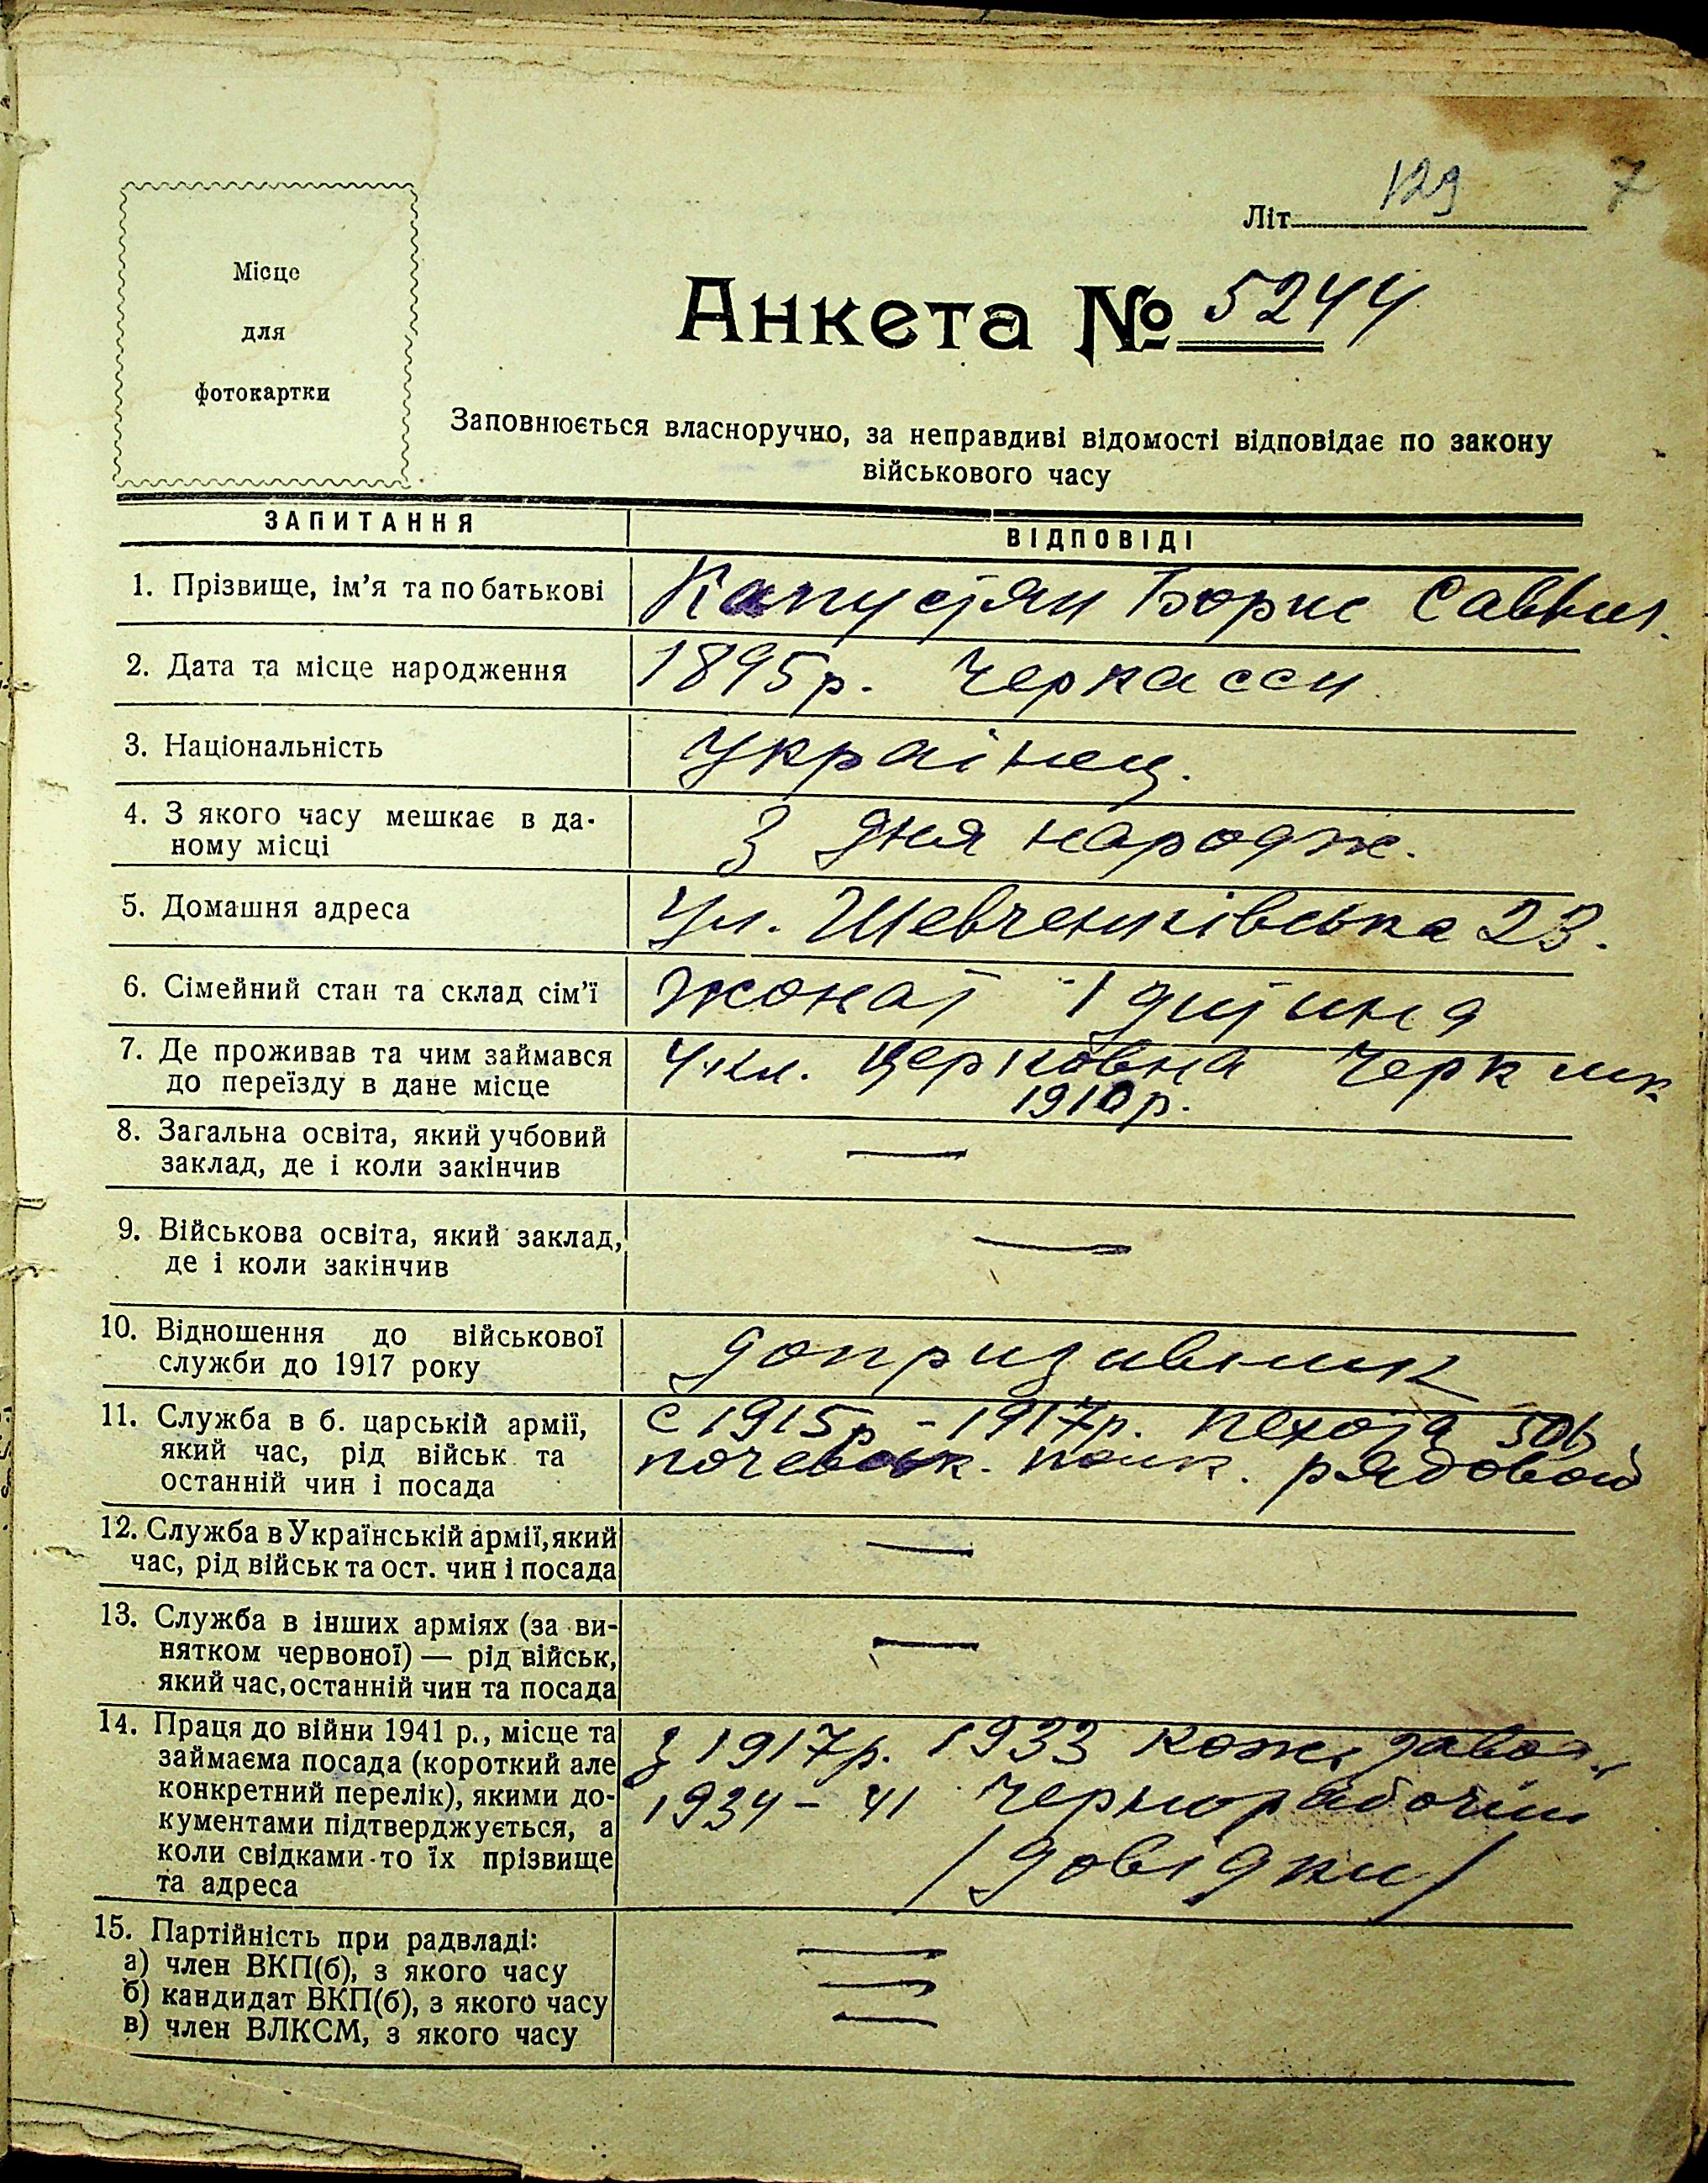 129
7
Літ
Анкета № 5244
Місце
для
фотокартки
Заповнюється власноручно, за неправдиві відомості відповідає по закону
військового часу
ЗАПИТАННЯ
ВІДПОВІДІ
1. Прізвище, ім'я та по батькові
Капустян Борис Саввич.
2. Дата та місце народження
1895 р. Черкасси
3. Національність
Украінец.
4. З якого часу мешкає в да-
ному місці
З дня народж.
5. Домашня адреса
Ул. Шевченківська 23.
6. Сімейний стан та склад сім'ї
жонат 1 дитина
7. Де проживав та чим займався
до переїзду в дане місце
4 кл. Церковна Черк
1910 р.
8. Загальна освіта, який учбовий
заклад, де і коли закінчив
—
9. Військова освіта, який заклад,
де і коли закінчив
—
10. Відношення до військової
служби до 1917 року
допризивник
11. Служба в б. царській армії,
який час, рід військ та
останній чин і посада
с 1915 р - 1917 р. пехота
полк. рядовой
12. Служба в Українській армії, який
час, рід військ та ост. чин і посада
—
13. Служба в інших арміях (за ви-
нятком червоної) — рід військ,
який час, останній чин та посада
—
14. Праця до війни 1941 р., місце та
займаєма посада (короткий але
конкретний перелік), якими до-
кументами підтверджується, а
коли свідками-то їх прізвище
та адреса
з 1917 р. 1933 кож. завод.
1934 - 41 Чернорабочий
/довідки/
15. Партійність при радвладі:
а) член ВКП(б), з якого часу
б) кандидат ВКП(б), з якого часу
в) член ВЛКСМ, з якого часу
—
—
—